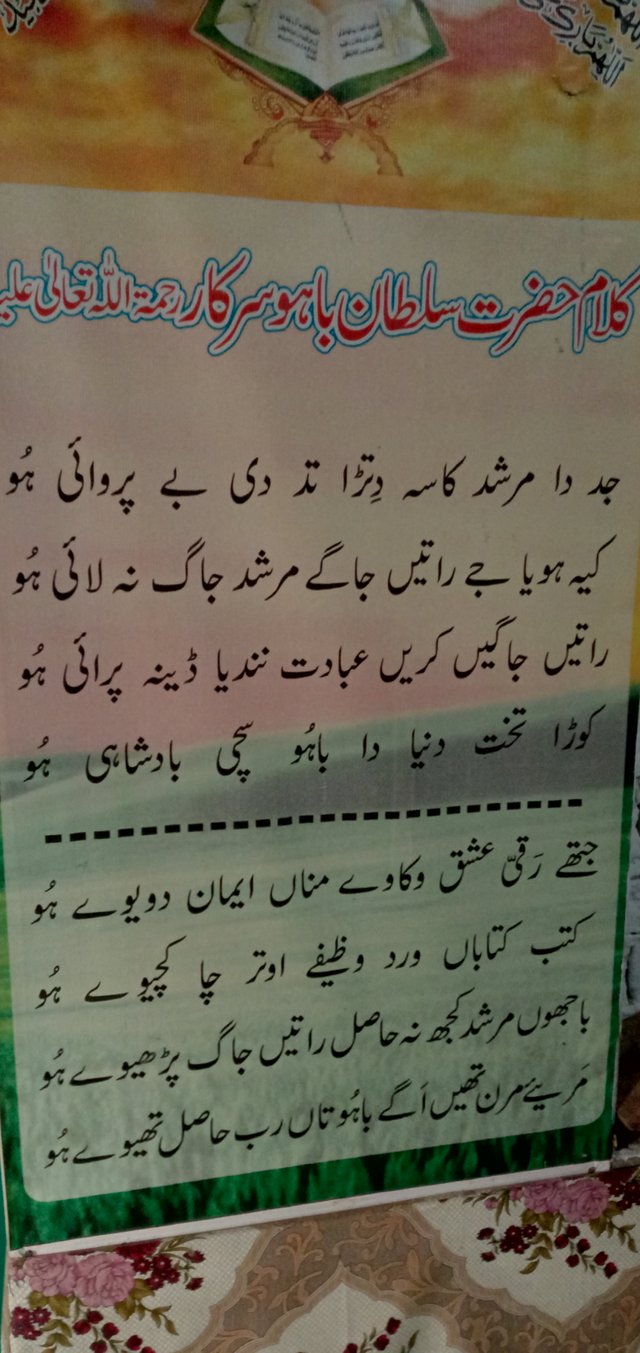 کلام حضرت سلطان باہو سرکار رحمۃ اللہ تعالیٰ علیہ
جد دا مرشد کاسہ دِتڑا تد دی بے پروائی ہُو
کیہ ہویا جے راتیں جاگے مرشد جاگ نہ لائی ہُو
راتیں جاگیں کریں عبادت نندیا ڈینہ پرائی ہُو
کوڑا تخت دنیا دا باہُو سچی بادشاہی ہُو
جتھے رَتّی عشق وکاوے مناں ایمان دویوے ہُو
کتب کتاباں ورد وظیفے اوتر چا کچیوے ہُو
باجھوں مرشد کجھ نہ حاصل راتیں جاگ پڑھیوے ہُو
مَریئے مرن تھیں اَگے باہُو تاں رب حاصل تھیوے ہُو